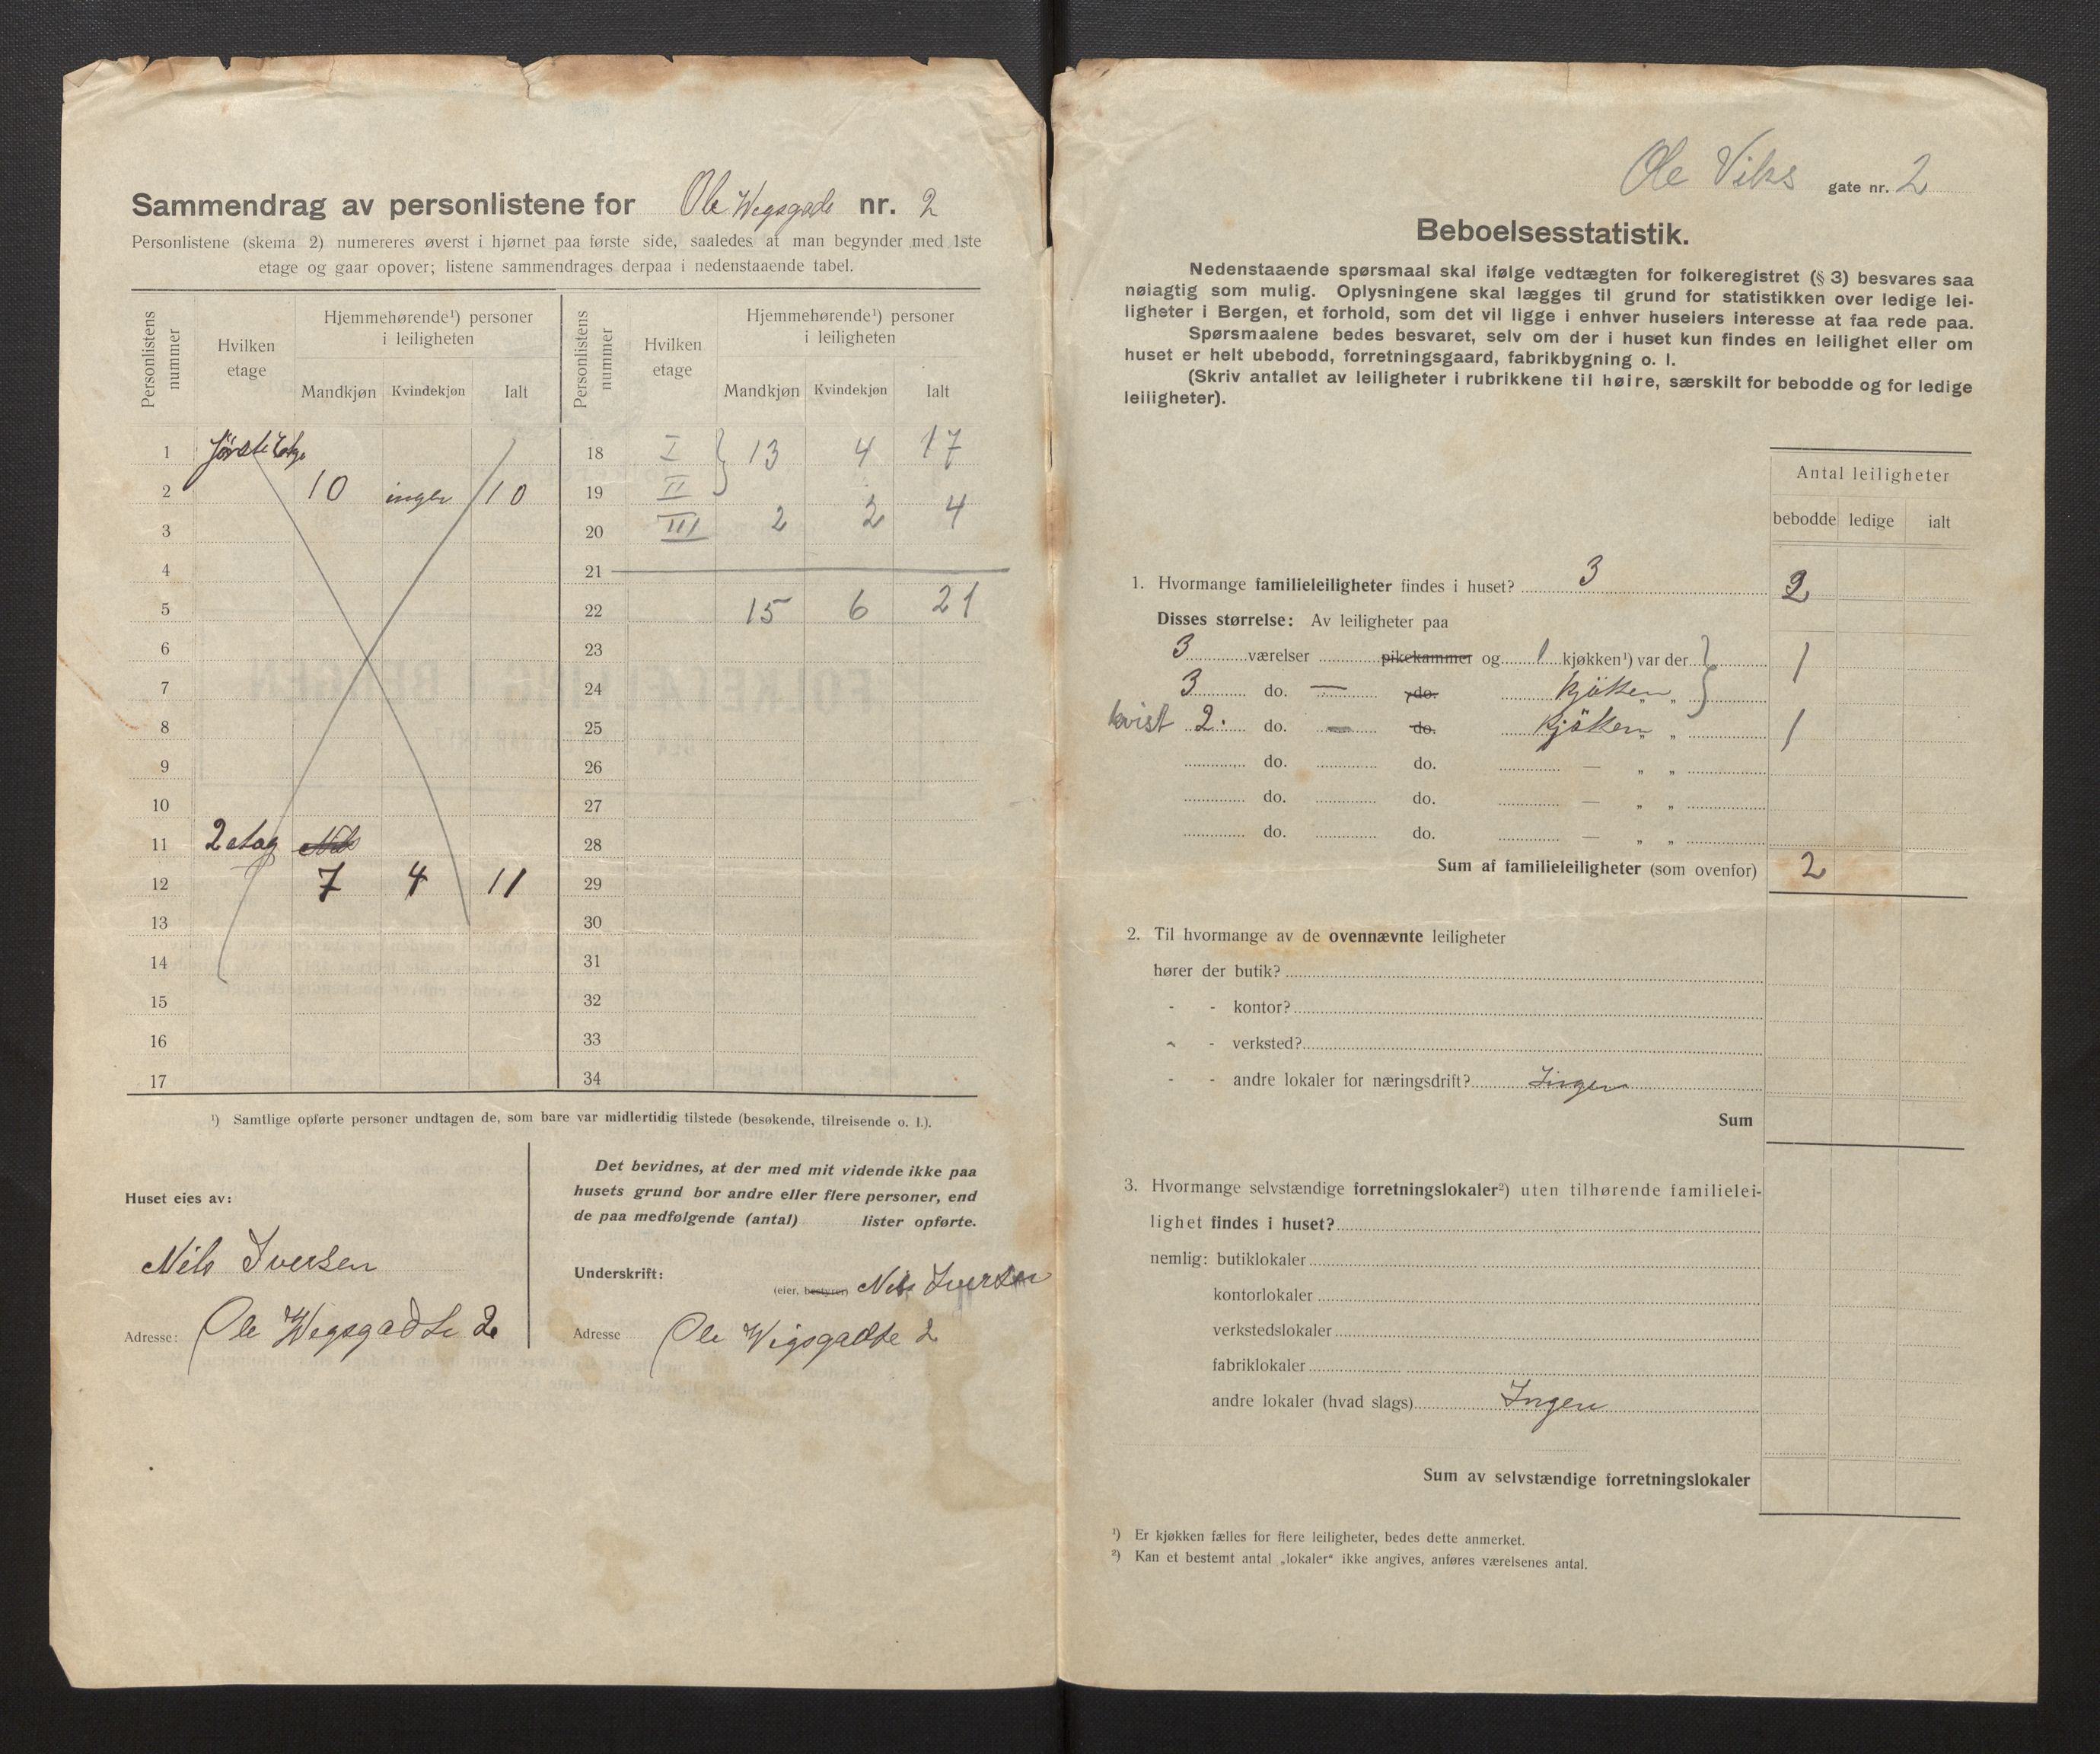 Sammendrag av personlistene for Ole Wegsgade nr. 2
Personlistene (skema 2) numereres øverst i hjørnet paa første side, saaledes at man begynder med 1ste
etage og gaar opover; listene sammendrages derpaa i nedenstaaende tabel.
Personlistens nummer
Hvilken etage
Hjemmehørende¹) personer i leiligheten
Mandkjøn Kvindekjøn Ialt
Personlistens nummer
Hvilken etage
Hjemmehørende¹) personer i leiligheten
Mandkjøn Kvindekjøn Ialt
1 første Etage
2 10 ingen 10
3
4
5
6
7
8
9
10
11 2 etag Nils
12 7 4 11
13
14
15
16
17
18 I } 13 4 17
19 II
20 III 2 2 4
21
22 15 6 21
23
24
25
26
27
28
29
30
31
32
33
34
¹) Samtlige opførte personer undtagen de, som bare var midlertidig tilstede (besøkende, tilreisende o. l.).
Huset eies av:
Nils Iversen
Adresse: Ole Wegsgadte 2
Det bevidnes, at der med mit vidende ikke paa
husets grund bor andre eller flere personer, end
de paa medfølgende (antal) lister opførte.
Underskrift:
(eier, bestyrer) Nils Iversen
Adresse Ole Wigsgadte 2
Ole Viks gate nr. 2
Beboelsesstatistik.
Nedenstaaende spørsmaal skal ifølge vedtægten for folkeregistret (§ 3) besvares saa
nøiagtig som mulig. Oplysningene skal lægges til grund for statistikken over ledige lei-
ligheter i Bergen, et forhold, som det vil ligge i enhver huseiers interesse at faa rede paa.
Spørsmaalene bedes besvaret, selv om der i huset kun findes en leilighet eller om
huset er helt ubebodd, forretningsgaard, fabrikbygning o. l.
(Skriv antallet av leiligheter i rubrikkene til høire, særskilt for bebodde og for ledige
leiligheter).
Antal leiligheter
bebodde ledige ialt
1. Hvormange familieleiligheter findes i huset? 3 2
Disses størrelse: Av leiligheter paa
3 værelser pikekammer og 1 kjøkken¹) var der } 1
3 do. — do. kjöken „ „
kvist 2 do. — do. kjöken „ „ 1
do. do. — „ „
do. do. — „ „
do. do. — „ „
Sum af familieleiligheter (som ovenfor) 2
2. Til hvormange av de ovennævnte leiligheter
hører der butik?
- - kontor?
- - verksted?
- - andre lokaler for næringsdrift? Ingen
Sum
3. Hvormange selvstændige forretningslokaler²) uten tilhørende familielei-
lighet findes i huset?
nemlig: butiklokaler
kontorlokaler
verkstedslokaler
fabriklokaler
andre lokaler (hvad slags) Ingen
Sum av selvstændige forretningslokaler
¹) Er kjøkken fælles for flere leiligheter, bedes dette anmerket.
²) Kan et bestemt antal „lokaler“ ikke angives, anføres værelsenes antal.